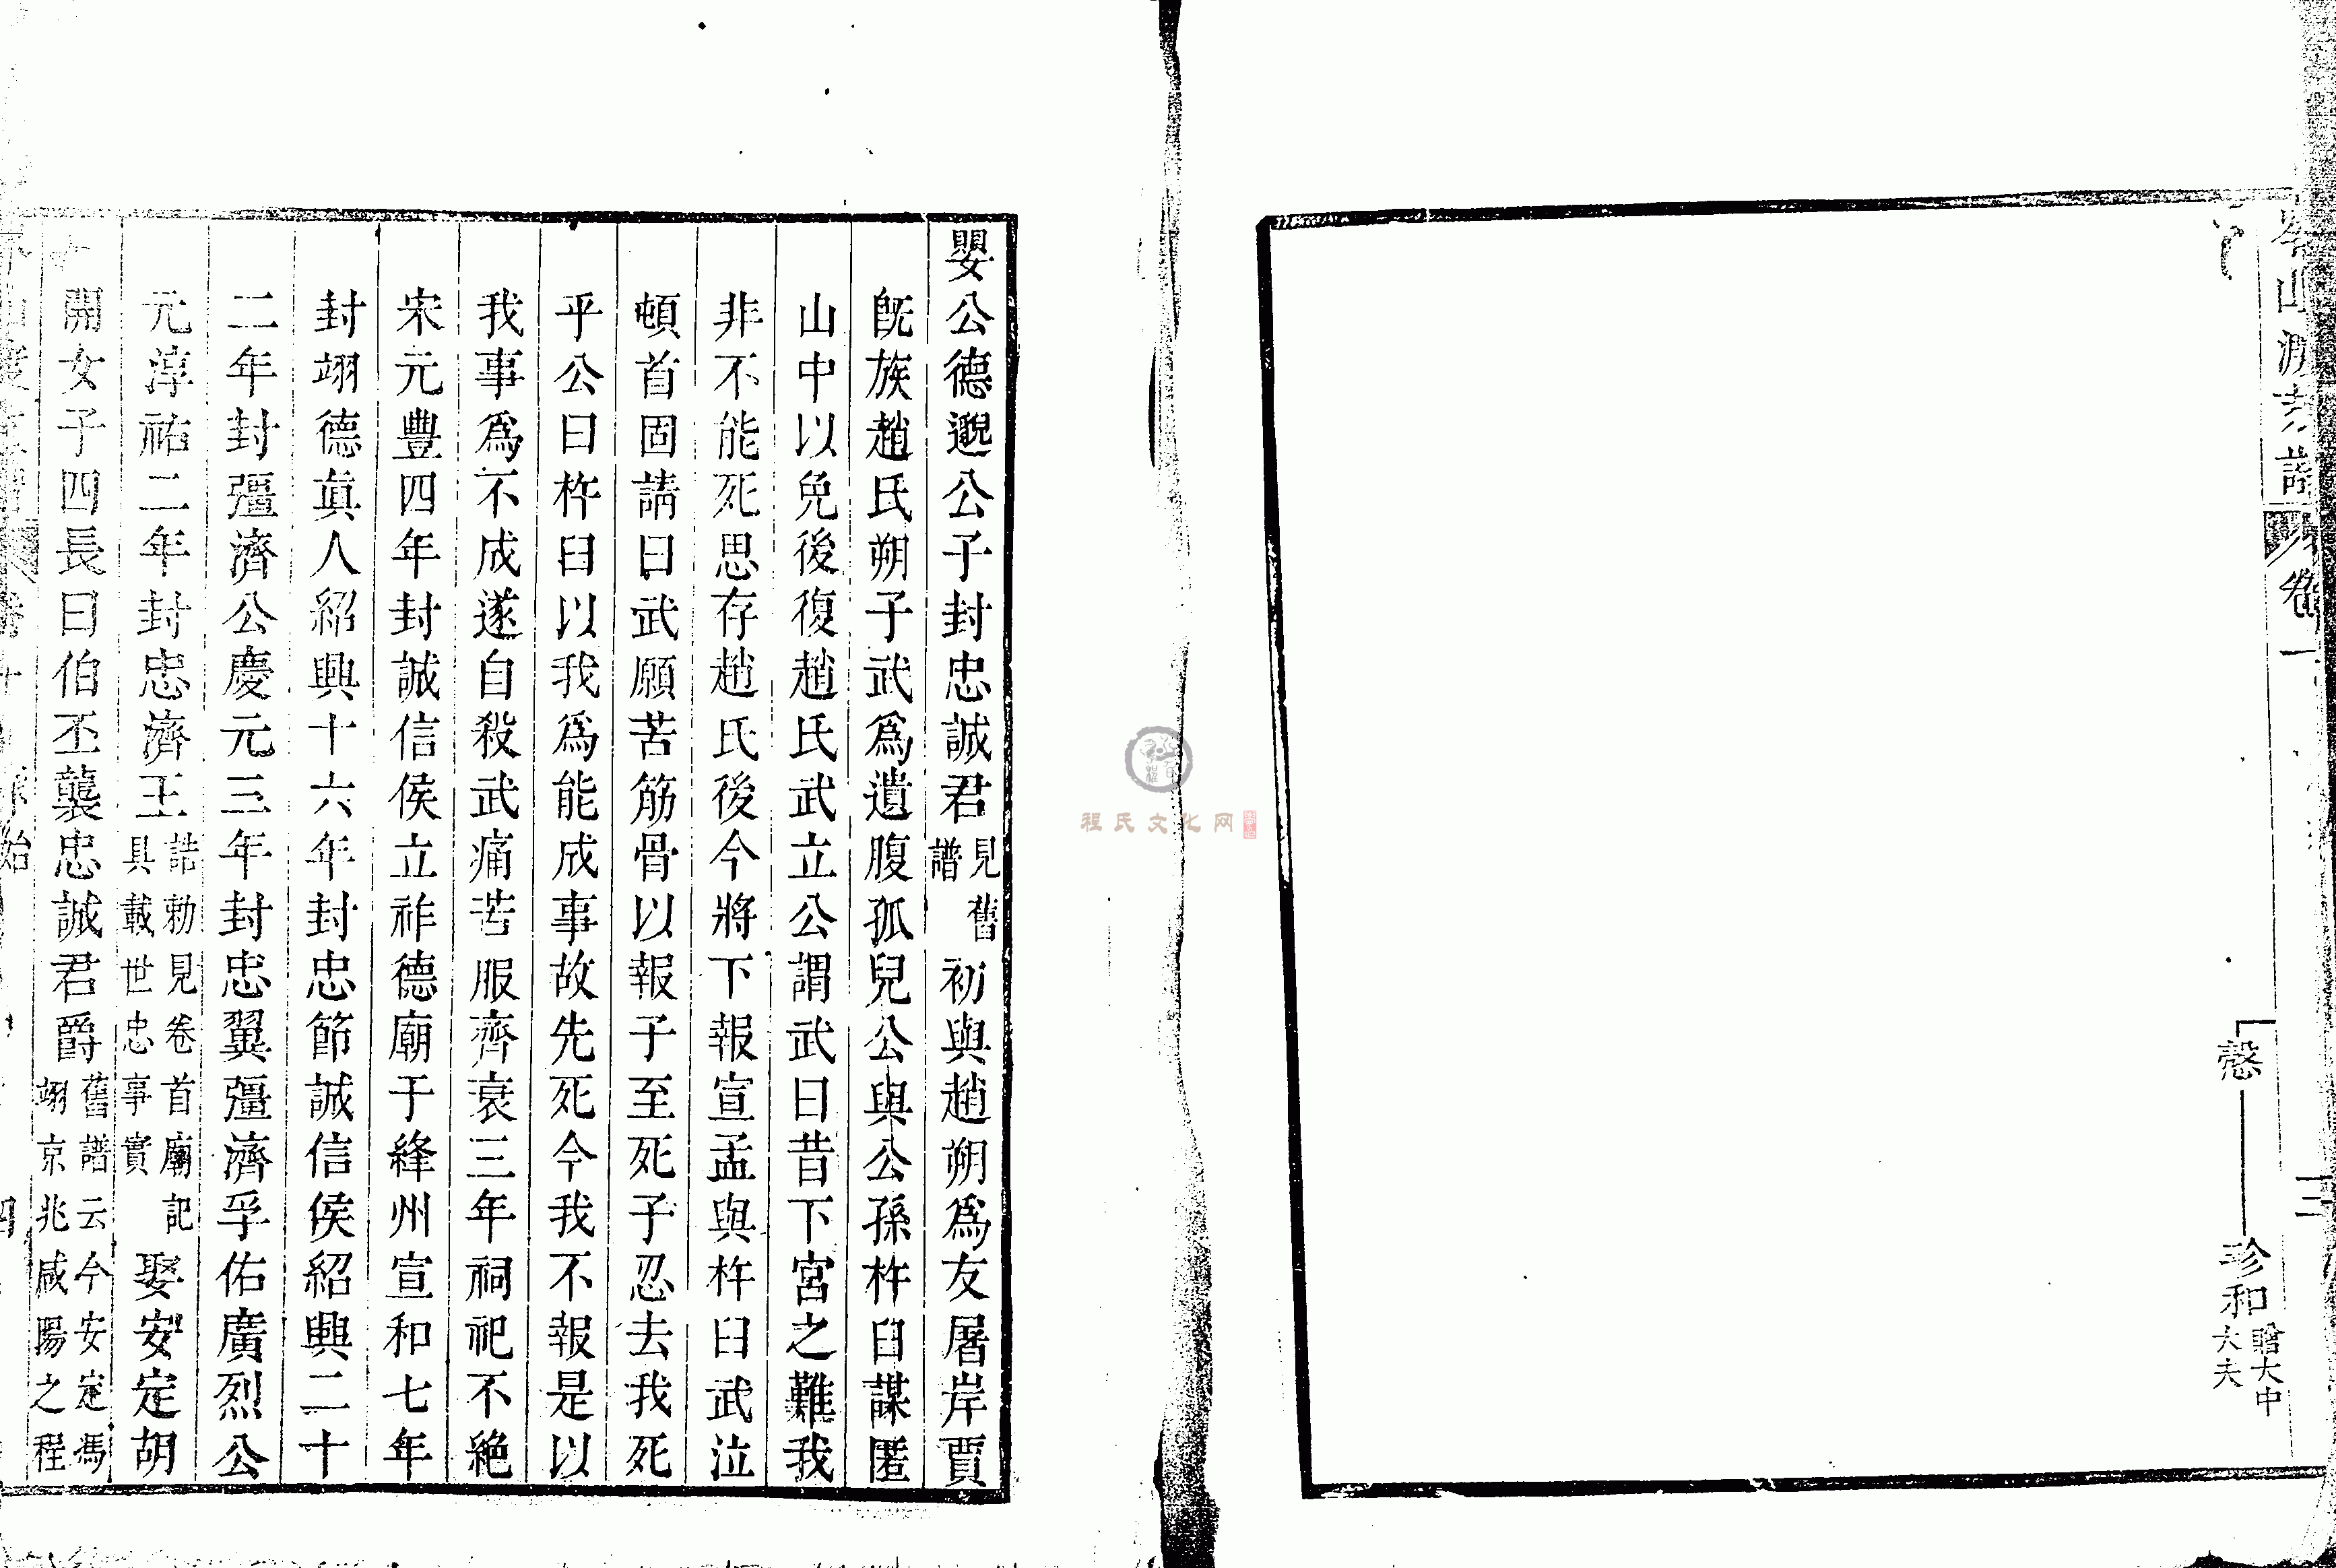 山源
譜
卷一
三
慤
珍
和贈大中
大夫
嬰公德邈公子封忠誠君見舊譜初與趙朔爲友屠岸賈
旣族趙氏朔子武爲遺腹孤兒公與公孫杵臼謀匿
山中以免後復趙氏武立公謂武曰昔下宮之難我
非不能死思存趙氏後今將下報宣孟與杵臼武泣
頓首固請曰武願苦筋骨以報子至死子忍去我死
乎公曰杵臼以我爲能成事故先死今我不報是以
我事爲不成遂自殺武痛苦服齊衰三年祠祀不絶
宋元豐四年封誠信侯立祚德廟于絳州宣和七年
封翊德眞人紹興十六年封忠節誠信侯紹興二十
二年封彊濟公慶元三年封忠翼彊濟孚佑廣烈公
元淳祐二年封忠濟王誥勅見卷首廟記具載世忠事實娶安定胡
開女子四長曰伯丕襲忠誠君爵舊譜云今安定馮翊京兆咸陽之程
程氏文化网